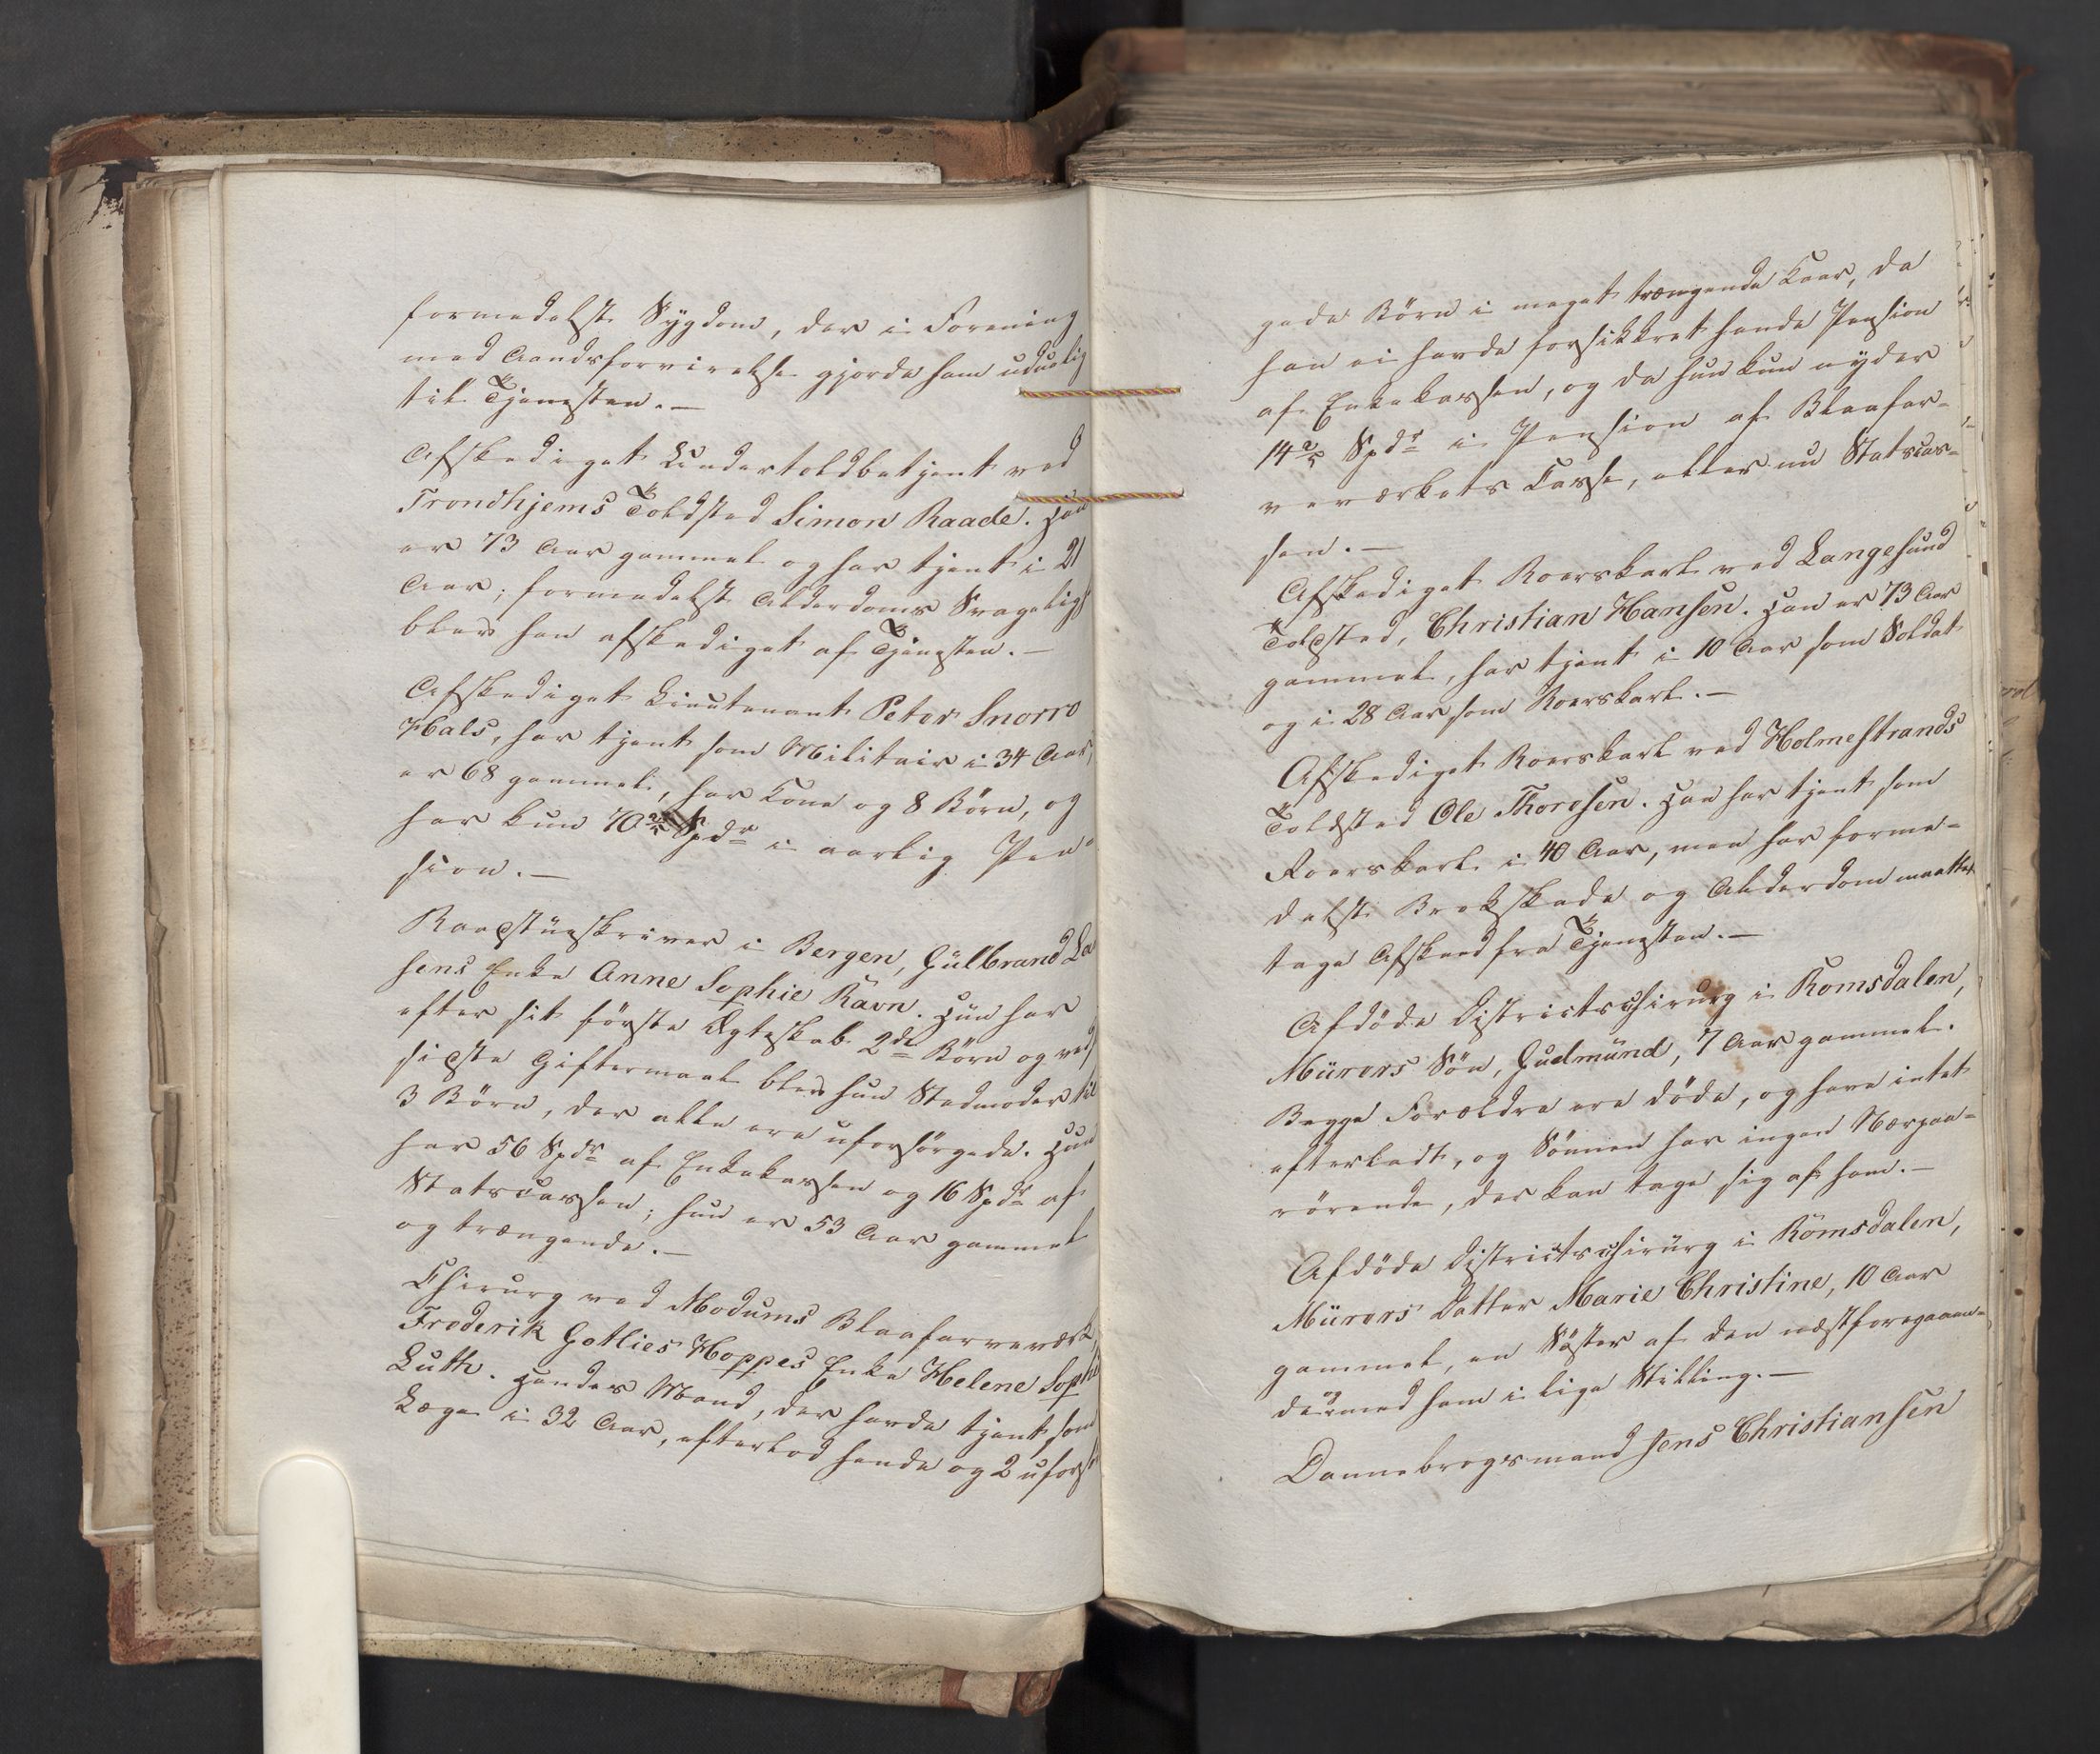 formedelst Sygdom, der i Forening
med Aandsforvirelse gjorde ham uduelig
til Tjenesten. —
Afskediget Undertoldbetjent ved
Trondhjems Toldsted Simon Raade. Han
er 73 Aar gammel og har tjent i 21
Aar; formedelst Alderdoms Svagelig
blev han afskediget af Tjenesten. —
Afskediget Lieutenant Peter Snorro
Hals, har tjent som Militair i 34 Aar,
er 68 gammel, har Kone og 8 Børn, og
har kun 70 2/5 Spdr i aarlig Pen-
sion. —
Raadstueskriver i Bergen, Gülbrand La
sens Enke Anne Sophie Ravn. Hun har
efter sit første Ægteskab 2de Børn og ved
sidste Giftermaal blev hun Stedmoder til
3 Børn, der alle ere uforsørgede. Hun
har 56 Spdr af Enkekassen og 16 Spdr af
Statscassen; hun er 53 Aar gammel
og trængende. —
Chirurg ved Modums Blaafarveværk,
Frederik Gotlies Hoppes Enke Helene Sophie
Luth. Hendes Mand, der havde tjent som
Læge i 32 Aar, efterlod hende og 2 uforsør
gede Børn i meget trængende Kaar, da
han ei havde forsikkret hende Pension
af Enkekassen, og da hun kun nyder
14 2/5 Spdr i Pension af Blaafar-
veværkets Casse, eller nu Statscas-
sen. —
Afskediget Roerskarl ved Langesund
Toldsted, Christian Hansen. Han er 73 Aar
gammel, har tjent i 10 Aar som Soldat
og i 28 Aar som Roerskarl. —
Afskediget Roerskarl ved Holmestrands
Toldsted Ole Thoresen. Han har tjent som
Roerskarl i 40 Aar, men har forme-
delst Brokskade og Alderdom maattet
tage Afskeed fra Tjenesten. —
Afdøde Districtschirurg i Romsdalen,
Mürers Søn, Gudmünd, 7 Aar gammel.
Begge Forældre ere døde, og have intet
efterladt, og Sønnen har ingen Nærpaa-
rørende, der kan tage sig af ham. —
Afdøde Districtschirurg i Romsdalen,
Mürers Datter Marie Christine, 10 Aar
gammel, en Søster af den næstforegaaen-
de og med ham i lige Stilling. —
Dannebrogsmand Jens Christiansen